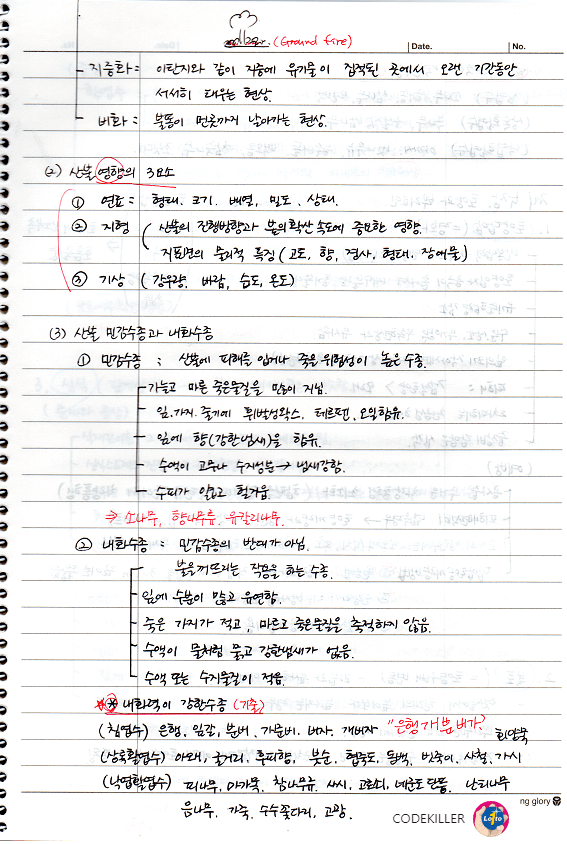 (Ground fire)
Date. No.
지중화 = 이탄지와 같이 지중에 유기물이 집적된 곳에서 오랜 기간동안
서서히 태우는 현상.
비화 = 불똥이 먼곳까지 날아가는 현상.
(2) 산불 영향의 3요소
① 연료 = 형태. 크기. 배열, 밀도. 상태.
② 지형 ( 산불의 진행방향과 불의 확산 속도에 중요한 영향.
지표면의 물리적 특징 (고도, 향, 경사, 형태, 장애물)
③ 기상 ( 강우량, 바람, 습도, 온도)
(3) 산불 민감수종과 내화수종
① 민감수종 ; 산불에 피해를 입거나 죽을 위험성이 높은 수종.
가늘고 마른 죽은물질을 많이 지님.
잎.가지. 줄기에 휘발성왁스, 테르펜, 오일함유.
잎에 향(강한냄새)을 함유.
수액이 고무나 수지성분 → 냄새강함.
수피가 얇고 헐거움.
⇒ 소나무, 향나무류, 유칼리나무.
② 내화수종 = 민감수종의 반대가 아님.
불을꺼뜨리는 작용을 하는 수종.
잎에 수분이 많고 유연함.
죽은 가지가 적고, 마르고 죽은물질을 축적하지 않음.
수액이 물처럼 묽고 강한냄새가 없음.
수액 또는 수지물질이 적음.
③ 내화력이 강한수종 (기출)
(침엽수) 은행, 잎갈, 분비, 가문비. 비자. 개비자 "은행개분비가?
(상록활엽수) 아왜, 굴거리, 후피향, 붓순, 협죽도, 동백, 빗죽이, 사철, 가시 회양목
(낙엽활엽수) 피나무, 마가목, 참나무류, 사시, 고로쇠, 네군도단풍. 난티나무
음나무, 가죽, 수수꽃다리, 고광.
ng glory
CODEKILLER
Lotto